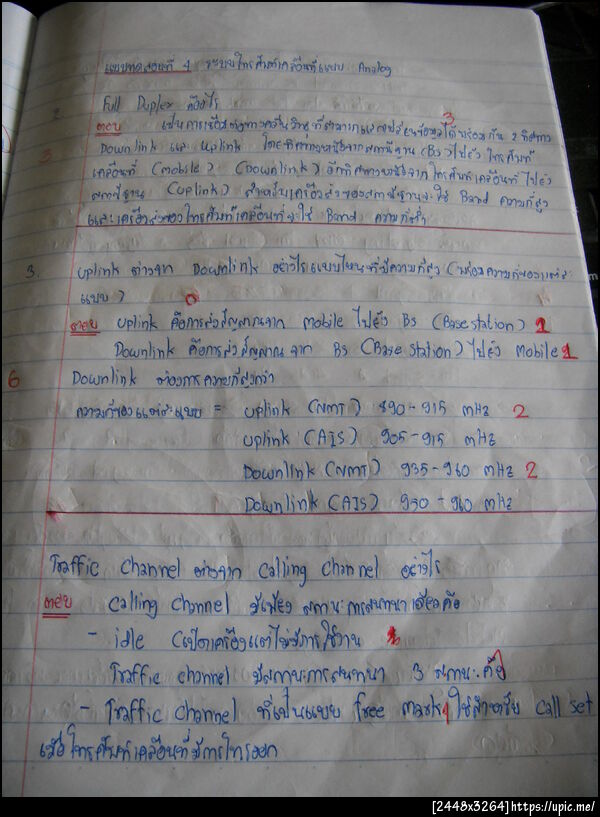 แบบทดสอบที่ 4 ระบบโทรศัพท์เคลื่อนที่แบบ Analog
2 Full Duplex คืออะไร
3
ตอบ เป็นการเชื่อมต่อทางคลื่นวิทยุที่สามารถแลกเปลี่ยนข้อมูลได้พร้อมกัน 2 ทิศทาง
3 Downlink และ Uplink โดยทิศทางจากสถานีฐาน (Bs) ไปยัง โทรศัพท์
เคลื่อนที่ (mobile) (Downlink) อีกทิศทางจากโทรศัพท์เคลื่อนที่ ไปยัง
สถานีฐาน (Uplink) สำหรับเครื่องส่งของสถานีฐานจะใช้ Band ความถี่สูง
และเครื่องส่งของโทรศัพท์เคลื่อนที่จะใช้ Band ความถี่ต่ำ
3. Uplink ต่างจาก Downlink อย่างไรแบบไหนที่มีความถี่สูง (พร้อมความถี่ของแต่ละ
แบบ)
ตอบ Uplink คือการส่งสัญญาณจาก Mobile ไปยัง Bs (Base station) 1
Downlink คือการส่งสัญญาณจาก Bs (Base Station) ไปยัง Mobile 1
6 Downlink ต้องการความถี่สูงกว่า
ความถี่ของแต่ละแบบ = Uplink (NMT) 890-915 mHz 2
Uplink (AIS) 905-915 mHz
Downlink (NMT) 935-960 mHz 2
Downlink (AIS) 950-960 mHz
Traffic Channel ต่างจาก Calling Channel อย่างไร
ตอบ Calling Channel มีเพียง สถานะการสนทนาเดียวคือ
- idle (เปิดเครื่องแต่ไม่มีการใช้งาน
Traffic channel มีสถานะการสนทนา 3 สถานะคือ
- Traffic Channel ที่เป็นแบบ free mark ใช้สำหรับ Call set
เมื่อโทรศัพท์เคลื่อนที่มีการโทรออก
[2448x3264] https://upic.me/